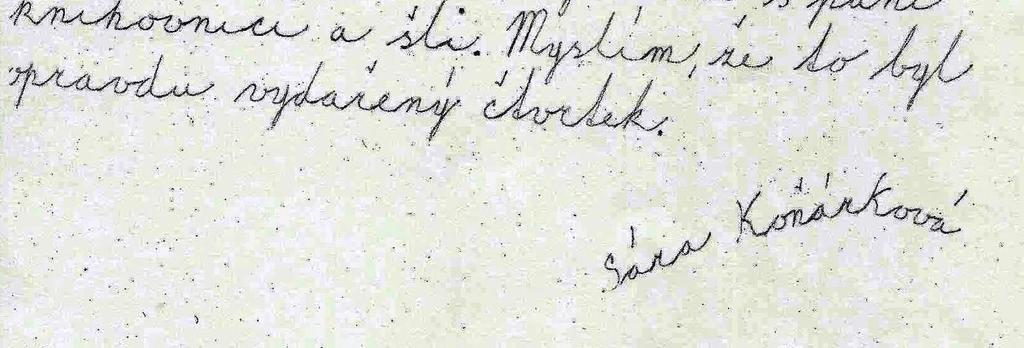 s paní
knihovnicí a šli. Myslím, že to byl
opravdu vydařený čtvrtek.
Sára Koňárková